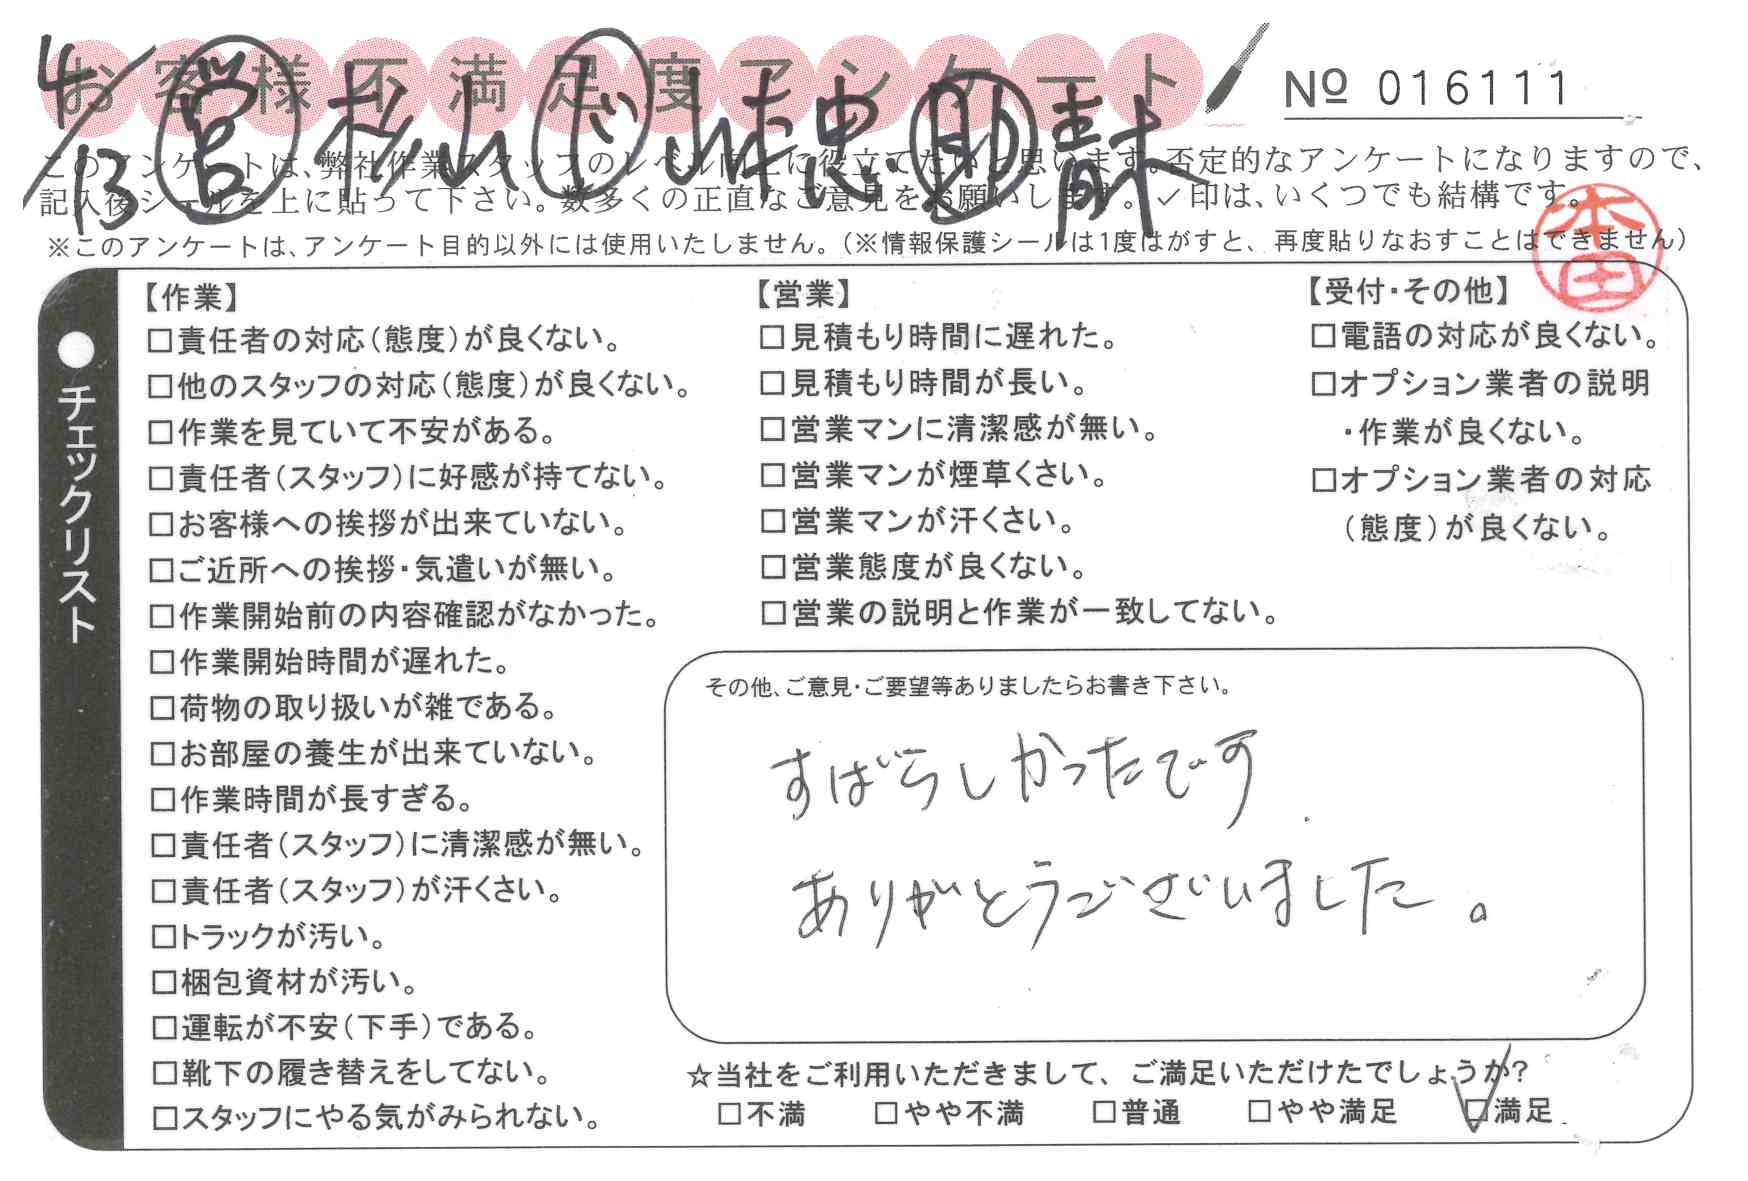 お客様不満足度アンケート
№ 016111
4/13 営 松山 ド 山本忠 助 青木
このアンケートは、弊社作業スタッフのレベル向上に役立てたいと思います。否定的なアンケートになりますので、
記入後シールを上に貼って下さい。数多くの正直なご意見をお願いします。✓印は、いくつでも結構です。
※このアンケートは、アンケート目的以外には使用いたしません。(※情報保護シールは1度はがすと、再度貼りなおすことはできません)
本田
●チェックリスト
【作業】
□責任者の対応(態度)が良くない。
□他のスタッフの対応(態度)が良くない。
□作業を見ていて不安がある。
□責任者(スタッフ)に好感が持てない。
□お客様への挨拶が出来ていない。
□ご近所への挨拶・気遣いが無い。
□作業開始前の内容確認がなかった。
□作業開始時間が遅れた。
□荷物の取り扱いが雑である。
□お部屋の養生が出来ていない。
□作業時間が長すぎる。
□責任者(スタッフ)に清潔感が無い。
□責任者(スタッフ)が汗くさい。
□トラックが汚い。
□梱包資材が汚い。
□運転が不安(下手)である。
□靴下の履き替えをしてない。
□スタッフにやる気がみられない。
【営業】
□見積もり時間に遅れた。
□見積もり時間が長い。
□営業マンに清潔感が無い。
□営業マンが煙草くさい。
□営業マンが汗くさい。
□営業態度が良くない。
□営業の説明と作業が一致してない。
【受付・その他】
□電話の対応が良くない。
□オプション業者の説明
・作業が良くない。
□オプション業者の対応
(態度)が良くない。
その他、ご意見・ご要望等ありましたらお書き下さい。
すばらしかったです
ありがとうございました。
☆当社をご利用いただきまして、ご満足いただけたでしょうか?
□不満 □やや不満 □普通 □やや満足 ☑満足